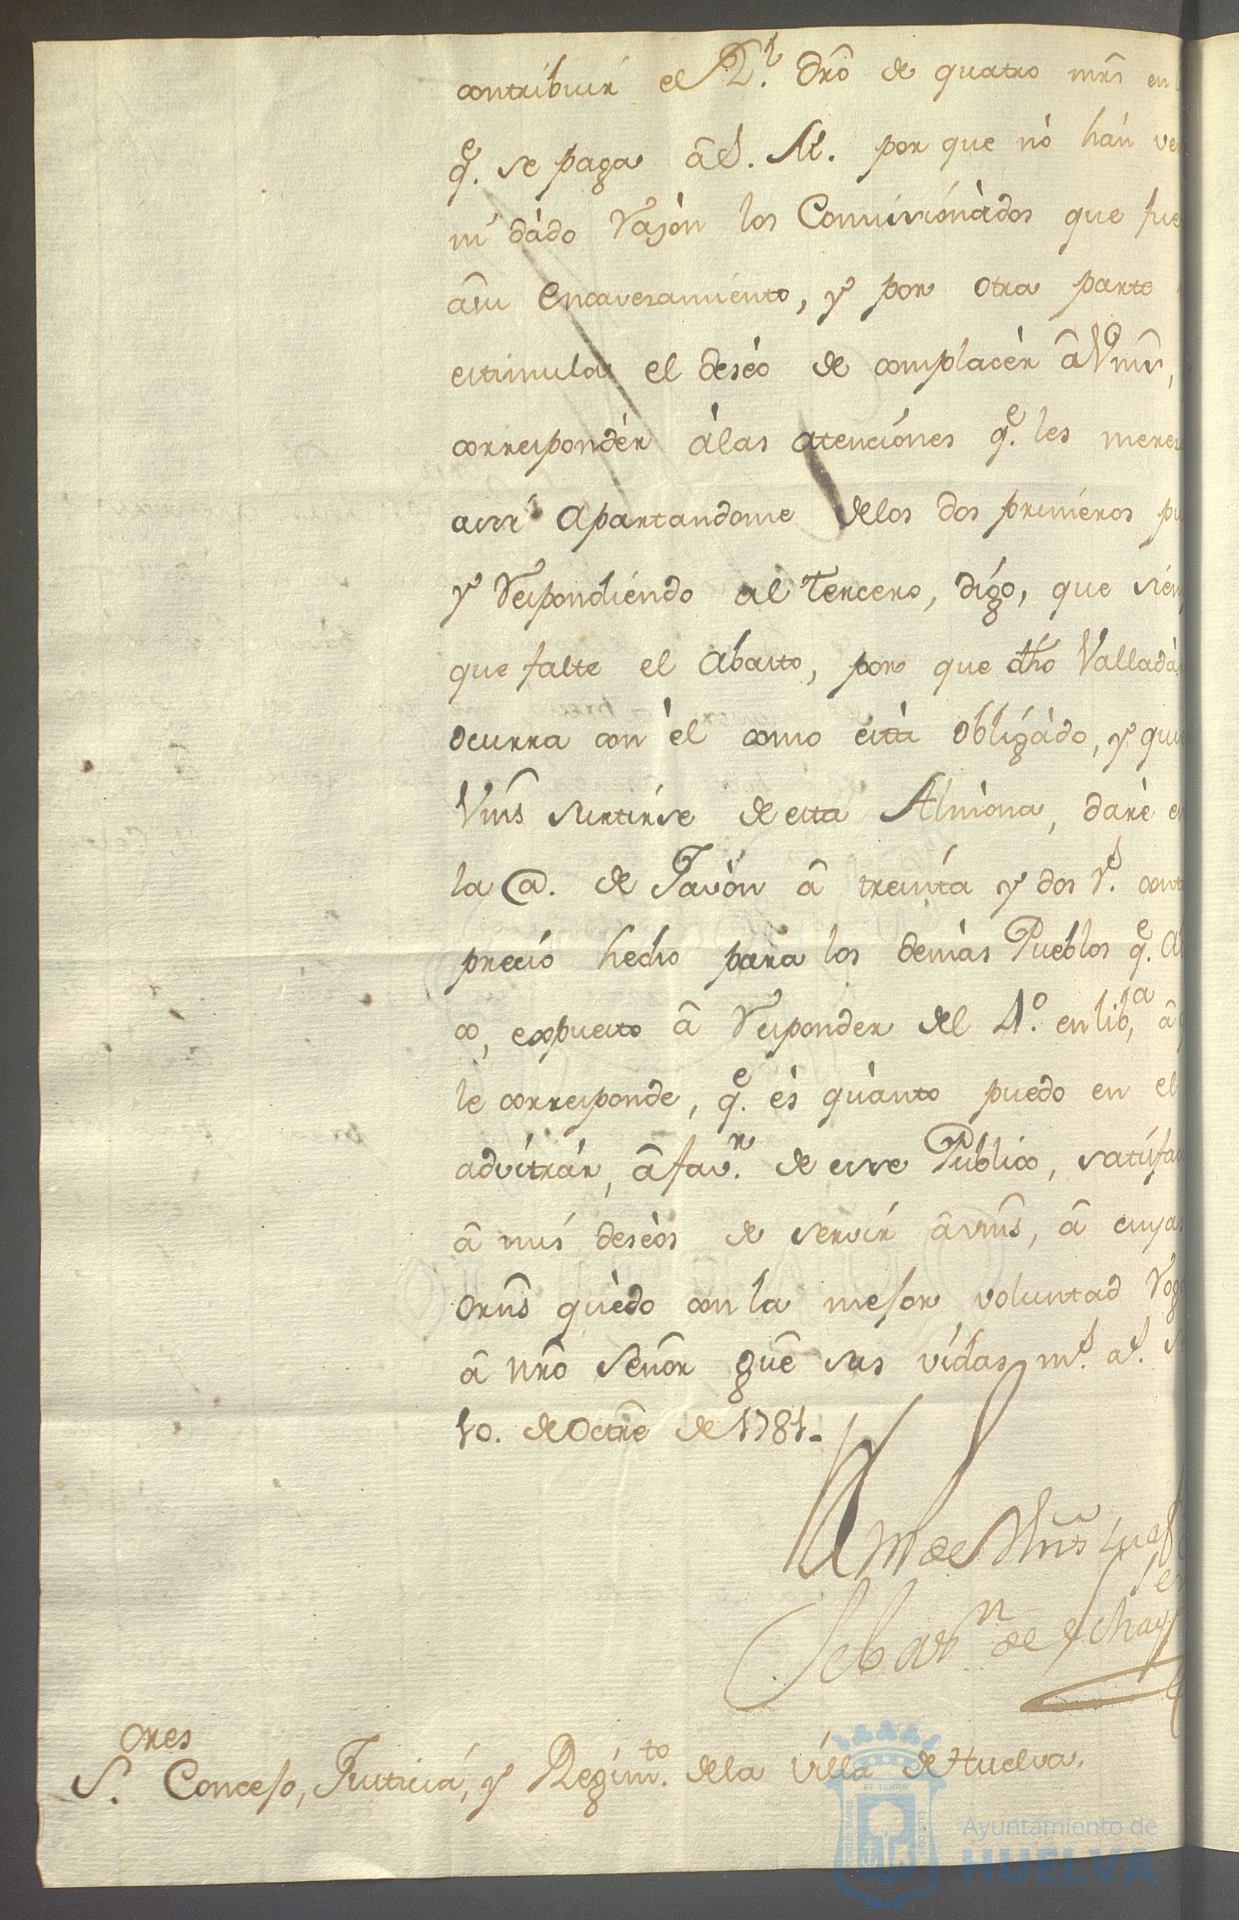 contribuir el Rl. dro de quatro mrs en
qe. se paga âS. M. por que nò hán
ni dàdo rasòn los Comisionàdos que fue
âsu encavesamiento, y por otra parte
estimula el deséo de complacèr âVms,
correspondèr àlas atenciónes qe. les mere
assi apartandome delos dos priméros
y respondiéndo al tercero, dígo, que sién
que falte el abasto, por que dho Valladà
ocurra con èl como està obligàdo, y qui
Vms surtirse de esta Almòna, darè
la @. de Javòn â treinta y dos rs. cont
preció hecho para los demàs Pueblos qe.
co, expuesto â responder del 4º. en liba, â
le corresponde, qe. ès quànto puedo en el
advitràr, âfavr. de esse Publico, satisfa
â mis deseòs de servir âvms, â cuyas
orns quèdo con la mejor voluntad rog
â nro señor gue sus vidas ms. as.
10. de Octre de 1781.
BlM de Vms su
Sebasn. de Echa
Sores. Consejo, Justicia, y Regimto. dela Villa de Huelva.
Ayuntamiento de
HUELVA